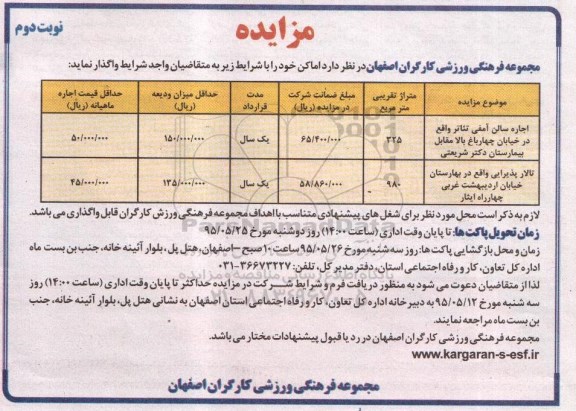 نوبت دوم
مزایده
مجموعه فرهنگی ورزشی کارگران اصفهان در نظر دارد اماکن خود را با شرایط زیر به متقاضیان واجد شرایط واگذار نماید:
موضوع مزایده | متراژ تقریبی متر مربع | مبلغ ضمانت شرکت در مزایده (ریال) | مدت قرارداد | حداقل میزان ودیعه (ریال) | حداقل قیمت اجاره ماهیانه (ریال)
اجاره سالن آمفی تئاتر واقع در خیابان چهارباغ بالا مقابل بیمارستان دکتر شریعتی | ۲۲۵ | ۶۵/۴۰۰/۰۰۰ | یک سال | ۱۵۰/۰۰۰/۰۰۰ | ۵۰/۰۰۰/۰۰۰
تالار پذیرایی واقع در بهارستان خیابان اردیبهشت غربی چهارراه ایثار | ۹۸۰ | ۵۸/۸۶۰/۰۰۰ | یک سال | ۱۳۵/۰۰۰/۰۰۰ | ۴۵/۰۰۰/۰۰۰
لازم به ذکر است محل مورد نظر برای شغل های پیشنهادی متناسب با اهداف مجموعه فرهنگی ورزش کارگران قابل واگذاری می باشد.
زمان تحویل پاکت ها: تا پایان وقت اداری (ساعت ۱۴:۰۰) روز دوشنبه مورخ ۹۵/۰۵/۲۵
زمان و محل بازگشایی پاکت ها: روز سه شنبه مورخ ۹۵/۰۵/۲۶ ساعت ۱۰ صبح – اصفهان، هتل پل، بلوار آئینه خانه، جنب بن بست ماه
اداره کل تعاون، کار و رفاه اجتماعی استان، دفتر مدیر کل، تلفن: ۳۶۶۷۳۲۲۷-۰۳۱
لذا از متقاضیان دعوت می شود به منظور دریافت فرم و شرایط شرکت در مزایده حداکثر تا پایان وقت اداری (ساعت ۱۴:۰۰) روز
سه شنبه مورخ ۹۵/۰۵/۱۲ به دبیرخانه اداره کل تعاون، کار و رفاه اجتماعی استان اصفهان به نشانی هتل پل، بلوار آئینه خانه، جنب
بن بست ماه مراجعه نمایند.
مجموعه فرهنگی ورزشی کارگران اصفهان در رد یا قبول پیشنهادات مختار می باشد.
www.kargaran-s-esf.ir
مجموعه فرهنگی ورزشی کارگران اصفهان